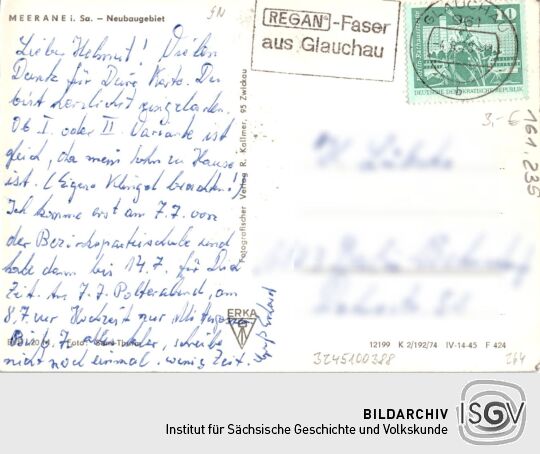 MEERANE i. Sa. – Neubaugebiet
Lieber Helmut! Vielen
Dank für Deine Karte. Du
bist herzlichst eingeladen.
Ob I. oder II. Variante ist
gleich, da mein Sohn zu Hause
ist. (Eigene Klingel beachten!)
Ich komme erst am 7.7. von
der Bezirksparteischule und
habe dann bis 14.7. für Dich
Zeit. Am 7.7. Polterabend, am
8.7. Hochzeit
Bis 6.7. schreibe
nicht noch einmal. wenig Zeit.
Gruß
REGAN®-Faser
aus Glauchau
GLAUCHAU
961
10
DEUTSCHE DEMOKRATISCHE REPUBLIK
3,- €
161.235
Fotografischer Verlag R. Kallmer, 95 Zwickau
ERKA
Foto:
12199 K 2/192/74 IV-14-45 F 424
3245100388
264
BILDARCHIV
Institut für Sächsische Geschichte und Volkskunde
ISGV